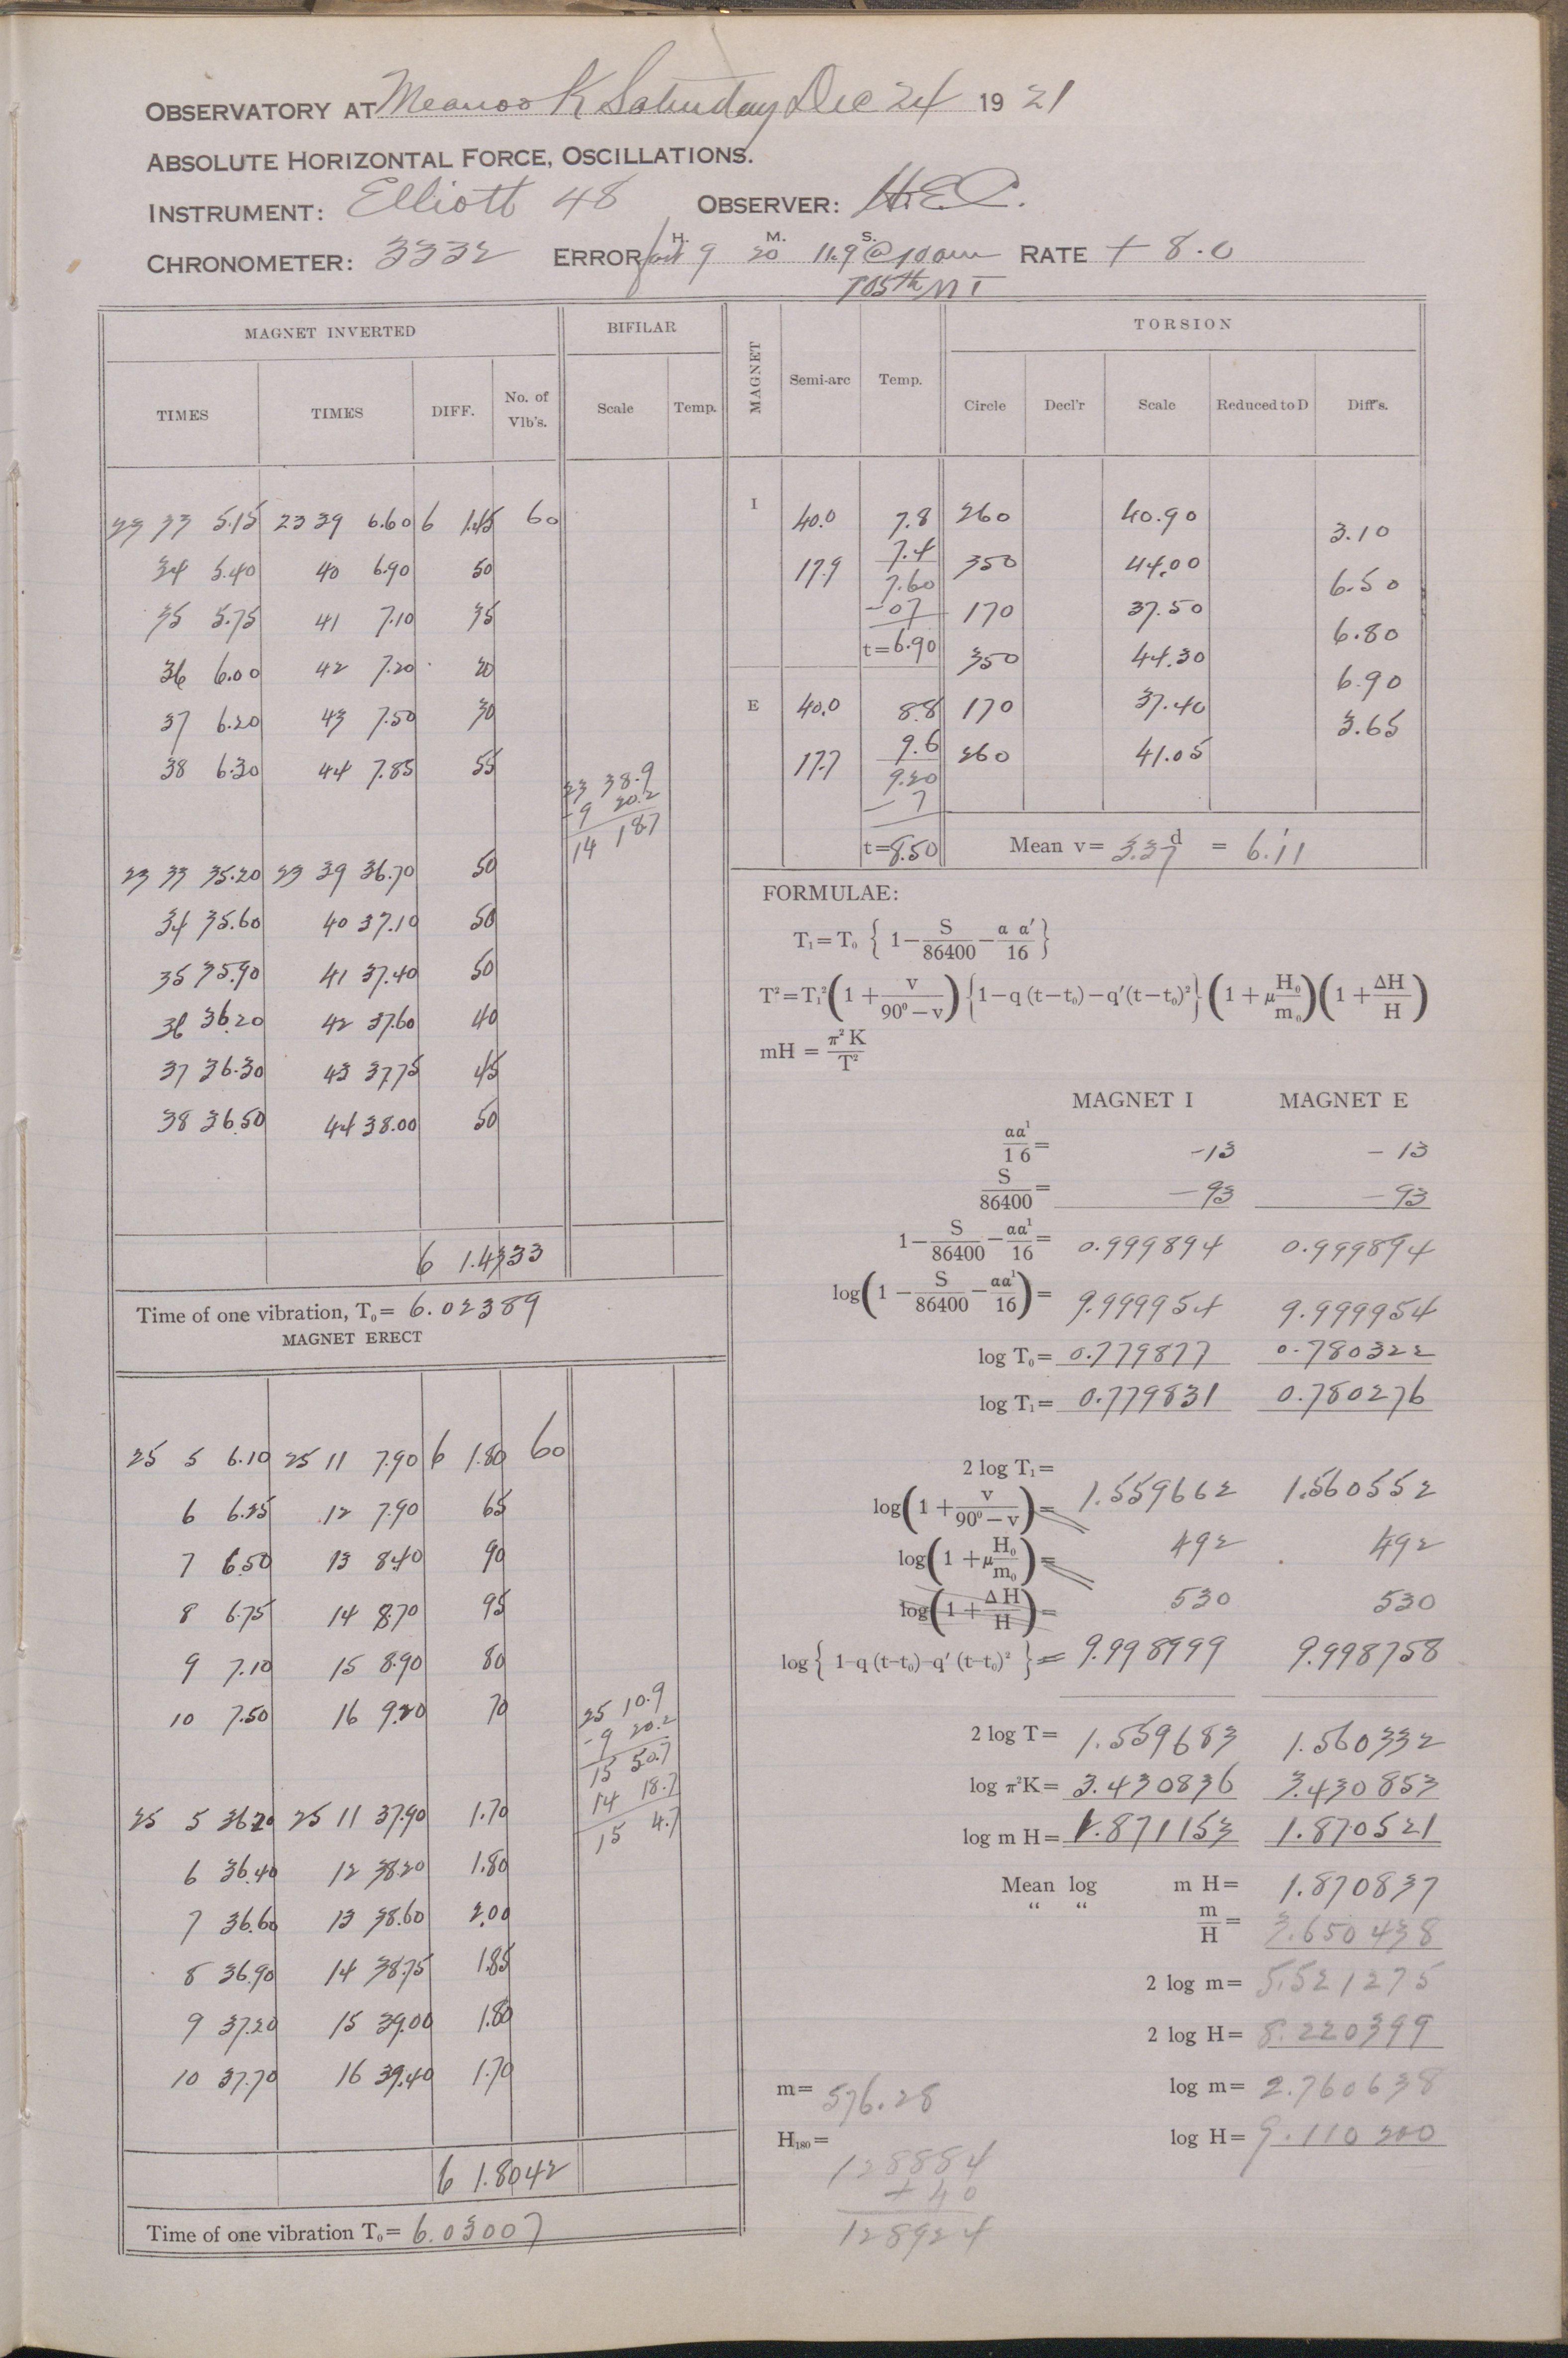 OBSERVATORY AT Meanook Saturday Dec 24 1921
ABSOLUTE HORIZONTAL FORCE, OSCILLATIONS.
INSTRUMENT: Elliott 48 OBSERVER: H.E.C.
H. M. S.
CHRONOMETER: 3332 ERROR fast 9 20 11.9 @ 10 am RATE + 8.0
105th M T
MAGNET INVERTED BIFILAR
TIMES TIMES DIFF. No. of Vib's. Scale Temp.
23 33 5.15 23 39 6.60 6 1.45 60
34 5.40 40 6.90 50
35 5.75 41 7.10 35
36 6.00 42 7.20 20
37 6.20 43 7.50 30
38 6.30 44 7.85 55
23 38.9
-9 20.2
14 18.7
23 33 35.20 23 39 36.70 50
34 35.60 40 37.10 50
35 35.90 41 37.40 50
36 36.20 42 37.60 40
37 36.30 43 37.75 45
38 36.50 44 38.00 50
6 1.4333
Time of one vibration, T₀= 6.02389
MAGNET ERECT
25 5 6.10 25 11 7.90 6 1.80 60
6 6.25 12 7.90 65
7 6.50 13 8.40 90
8 6.75 14 8.70 95
9 7.10 15 8.90 80
10 7.50 16 9.20 70
25 10.9
-9 20.2
15 50.7
14 18.7
15 4.7
25 5 36.20 25 11 37.90 1.70
6 36.40 12 38.20 1.80
7 36.60 13 38.60 2.00
8 36.90 14 38.75 1.85
9 37.20 15 39.00 1.80
10 37.70 16 39.40 1.70
6 1.8042
Time of one vibration T₀= 6.03007
MAGNET Semi-arc Temp. TORSION
Circle Decl'r Scale Reduced to D Diff's.
I 40.0 7.8 260 40.90
3.10
17.9 7.4 350 44.00
7.60 6.50
-.07 170 37.50
6.80
t=6.90 350 44.30
6.90
E 40.0 8.8 170 37.40
3.65
17.7 9.6 260 41.05
9.20
- 7
t=8.50 Mean v= 3.37 d = 6.'11
FORMULAE:
T₁=T₀ { 1 − S/86400 − a a′/16 }
T²=T₁² (1 + v/90°−v) {1−q (t−t₀)−q′(t−t₀)²} (1 + μ H₀/m₀) (1 + ΔH/H)
mH = π² K/T²
MAGNET I MAGNET E
aa¹/16 = -13 - 13
S/86400 = -93 -93
1 − S/86400 − aa¹/16 = 0.999894 0.999894
log(1 − S/86400 − aa¹/16) = 9.999954 9.999954
log T₀= 0.779877 0.780322
log T₁= 0.779831 0.780276
2 log T₁= 1.559662 1.560552
log(1 + v/90°−v) = 492 492
log(1 + μ H₀/m₀) = 530 530
log(1 + ΔH/H) =
log { 1−q (t−t₀)−q′ (t−t₀)² } = 9.998999 9.998758
2 log T= 1.559683 1.560332
log π²K= 3.430836 3.430853
log m H= 1.871153 1.870521
Mean log m H= 1.870837
“ “ m/H = 3.650438
2 log m= 5.521275
2 log H= 8.220399
log m= 2.760638
log H= 9.110200
m= 576.28
H₁₈₀=
128884
+ 40
128924